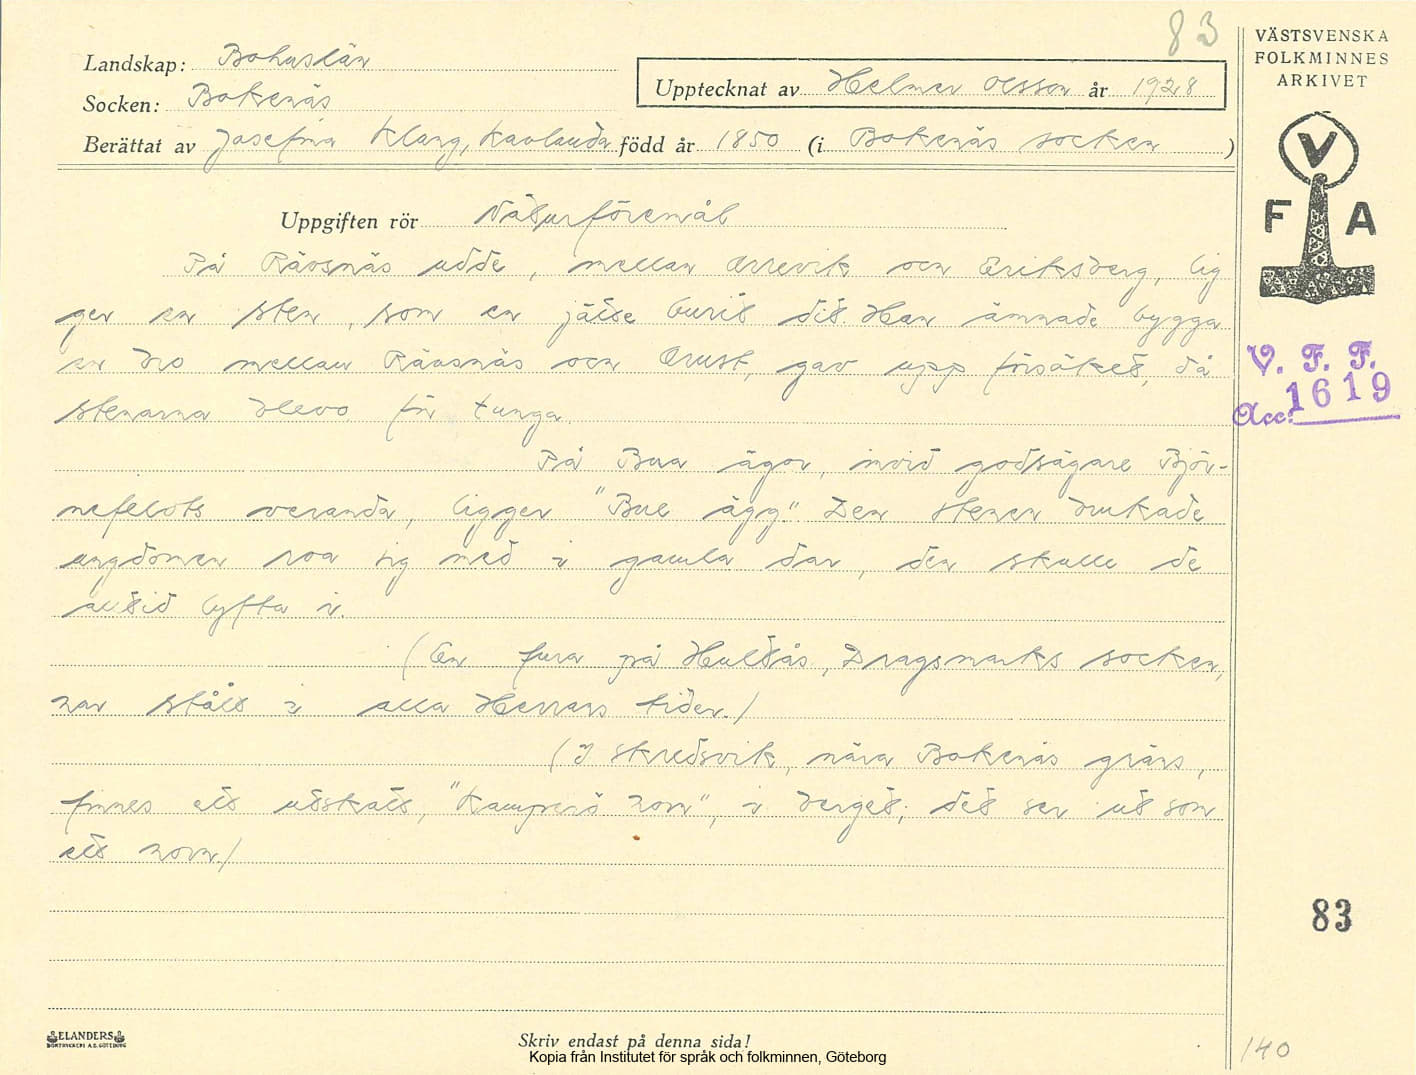 83
VÄSTSVENSKA
FOLKMINNES
ARKIVET
Landskap: Bohuslän
Socken: Bokenäs
Upptecknat av Helmer Olsson år 1928
Berättat av Josefina Klang, Kavlanda född år 1850 (i Bokenäs socken)
V
F A
Uppgiften rör Naturföremål
På Rävsnäs udde, mellan Orrevik och Eriksberg, lig
ger en sten, som en jätte burit dit. Han ämnade bygga
en bro mellan Rävsnäs och Orust, gav upp försöket, då
stenarna blevo för tunga.
V. F. F.
Acc: 1619
På Bua ägor, invid godsägare Björ-
nefeldts veranda, ligger "Bue ägg". Den stenen brukade
ungdomen roa sig med i gamla dar, den skulle de
alltid lyfta i.
(En fura på Hultås, Dragsmarks socken,
har stått i alla Herrans tider.)
(I Skredsvik, nära Bokenäs gräns,
finnes ett utskott, "Kamperö horn", i berget; det ser ut som
ett horn.)
83
ELANDERS
BOKTRYCKERI A.B. GÖTEBORG
Skriv endast på denna sida!
Kopia från Institutet för språk och folkminnen, Göteborg
140